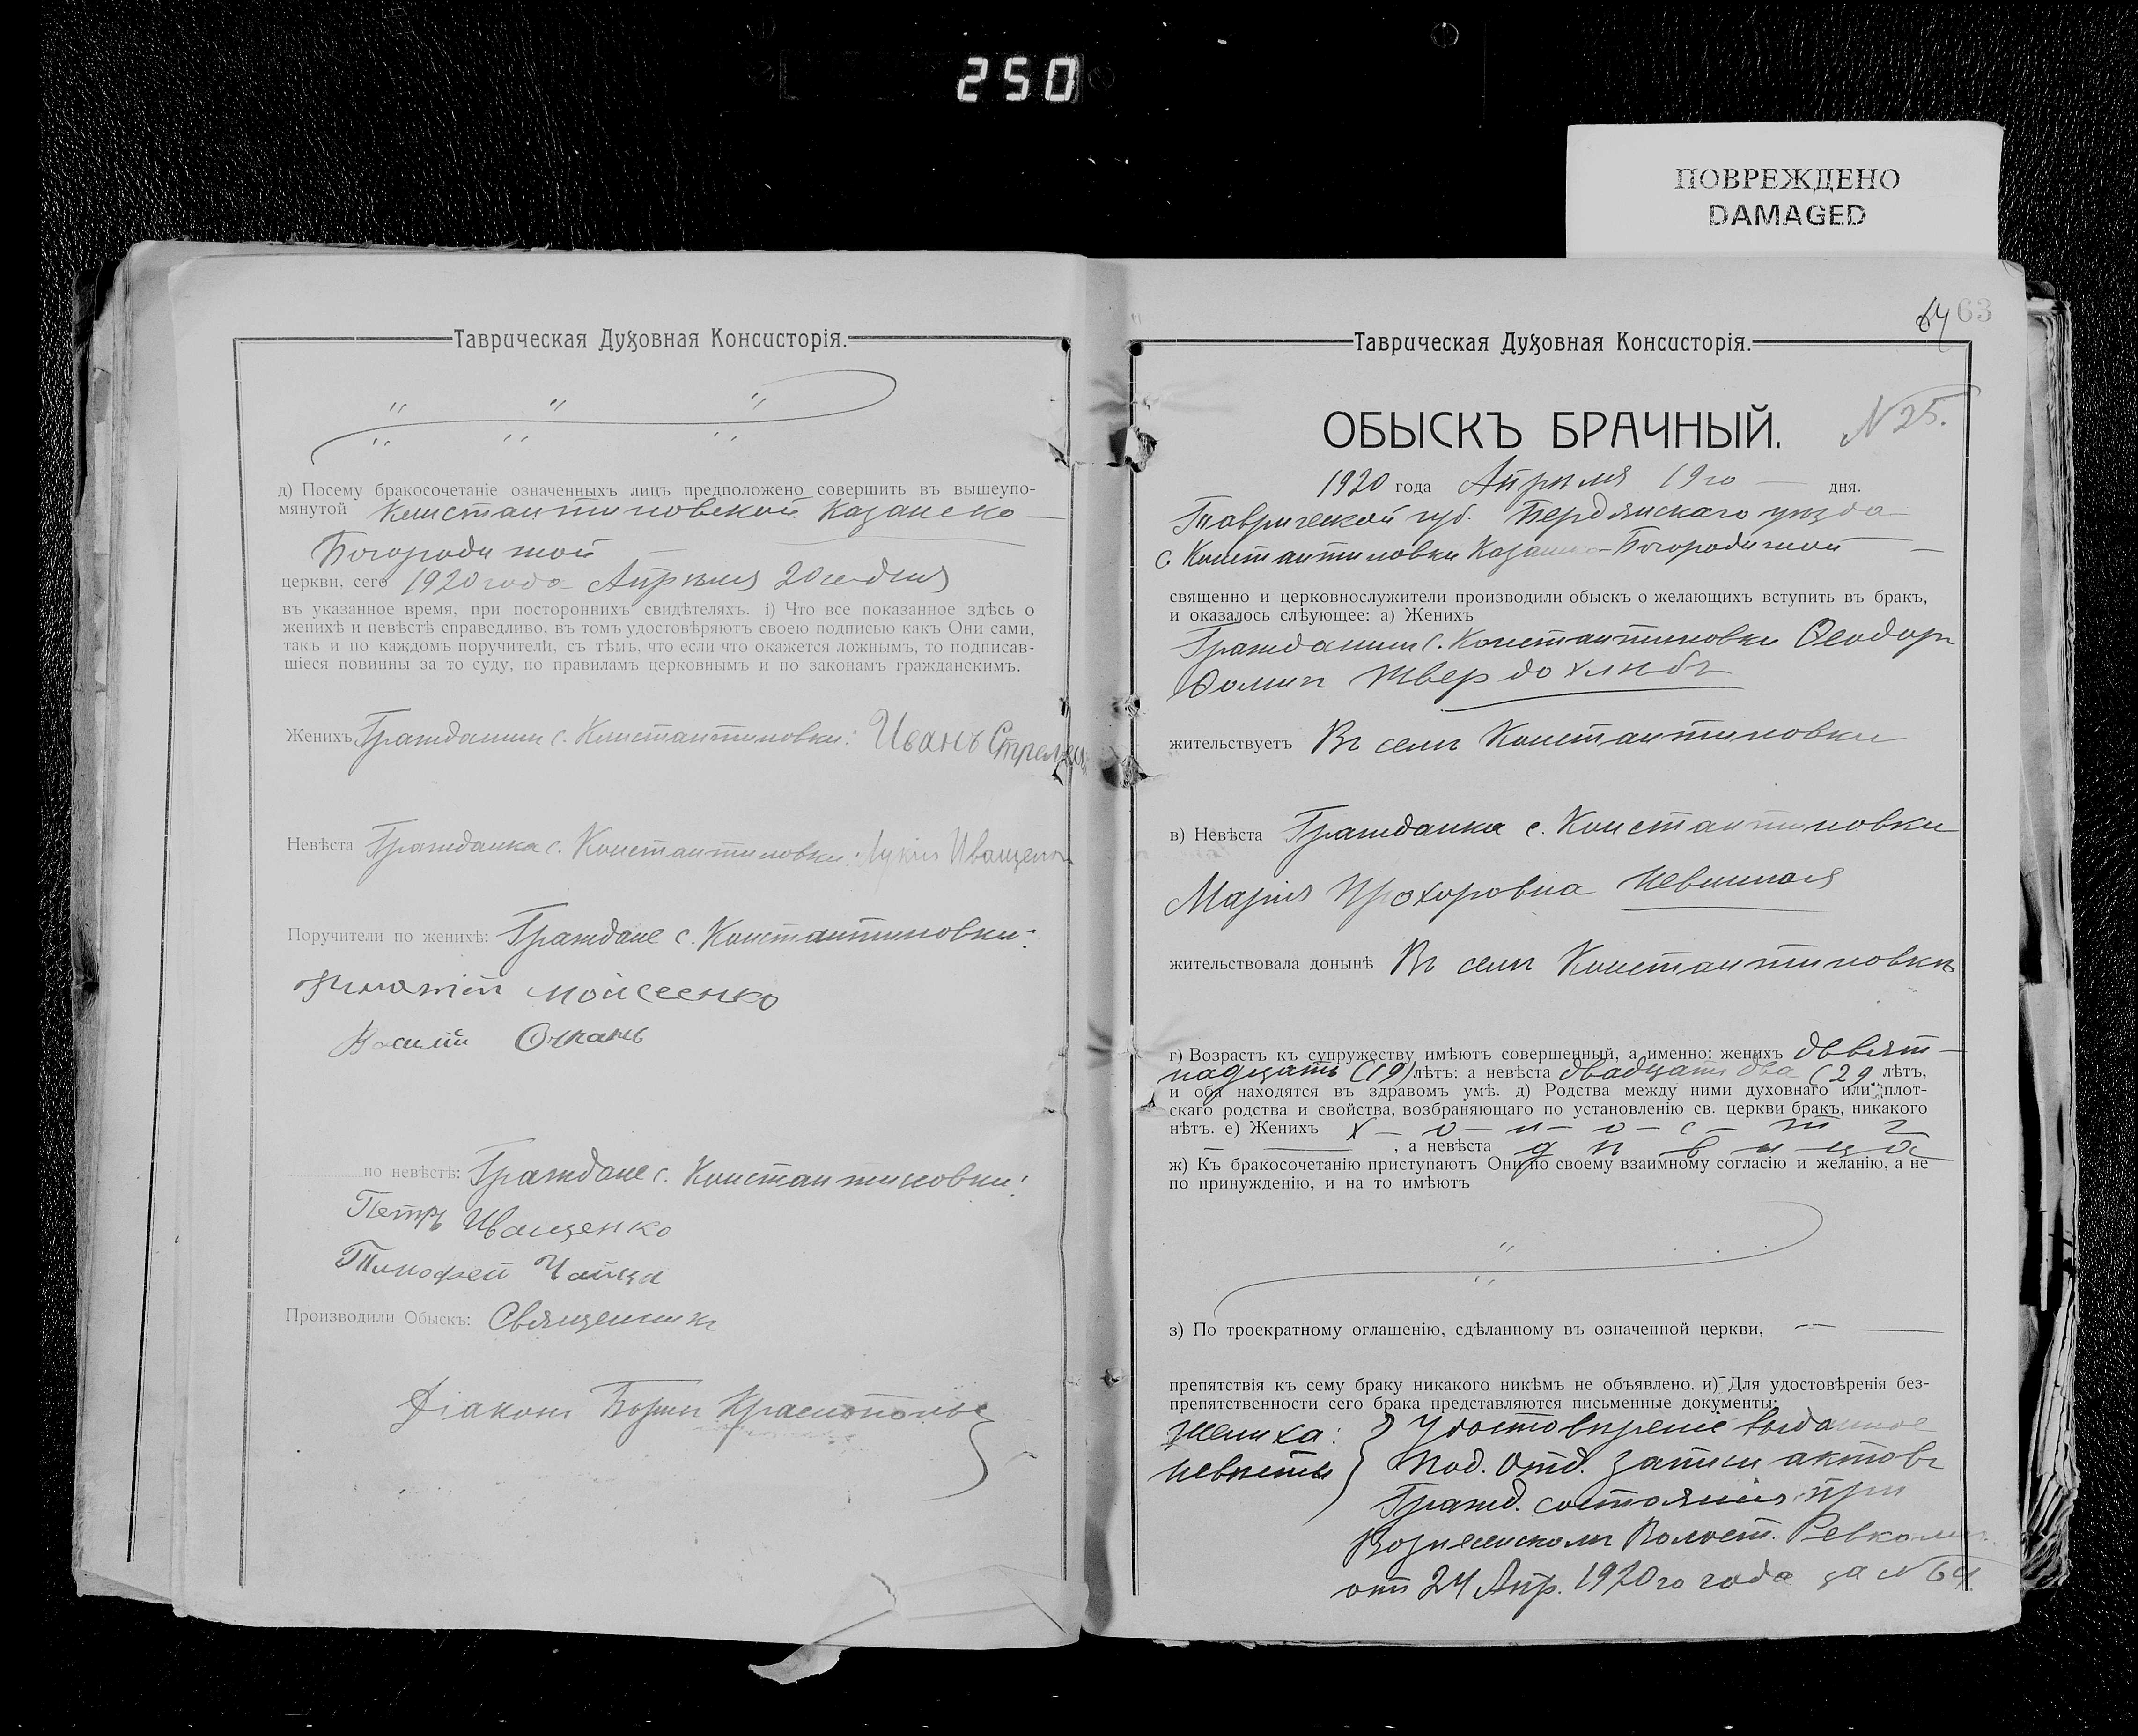 250
ПОВРЕЖДЕНО
DAMAGED
Таврическая Духовная Консисторія.
д) Посему бракосочетаніе означенныхъ лицъ предположено совершить въ вышеупо-
мянутой Константиновской Казанско-
Богородичной
церкви, сего 1920 года Апрѣля 20го дня
въ указанное время, при постороннихъ свидѣтеляхъ. і) Что все показанное здѣсь о
женихѣ и невѣстѣ справедливо, въ томъ удостовѣряютъ своею подписью какъ Они сами,
такъ и по каждомъ поручители, съ тѣмъ, что если что окажется ложнымъ, то подписав-
шіеся повинны за то суду, по правиламъ церковнымъ и по законамъ гражданскимъ.
Женихъ Гражданин с. Константиновки: Иванъ
Невѣста Гражданка с. Константиновки: Иващенко
Поручители по женихѣ: Граждане с. Константиновки:
Моисеенко
Василій
по невѣстѣ: Граждане с. Константиновки:
Петръ Иващенко
Тимофей
Производили Обыскъ: Священникъ
Діаконъ
64 63
Таврическая Духовная Консисторія.
ОБЫСКЪ БРАЧНЫЙ. N 25.
1920 года Апрѣля 19го дня.
Таврической губ. Бердянскаго уѣзда
с. Константиновки Казанско-Богородичной
священно и церковнослужители производили обыскъ о желающихъ вступить въ бракъ,
и оказалось слѣующее: а) Женихъ
Гражданин с. Константиновки Ѳеодоръ
Ѳомин Твердохлѣбъ
жительствуетъ Въ селѣ Константиновки
в) Невѣста Гражданка с. Константиновки
Марія Прохоровна
жительствовала донынѣ Въ селѣ Константиновкѣ
г) Возрастъ къ супружеству имѣютъ совершенный, а именно: женихъ девят-
надцать (19) лѣтъ: а невѣста двадцать два лѣтъ,
и оба находятся въ здравомъ умѣ. д) Родства между ними духовнаго или плот-
скаго родства и свойства, возбраняющаго по установленію св. церкви бракъ, никакого
нѣтъ. е) Женихъ х – о – л – о – с – т ъ
, а невѣста д ѣ в и ц а
ж) Къ бракосочетанію приступаютъ Они по своему взаимному согласію и желанію, а не
по принужденію, и на то имѣютъ
з) По троекратному оглашенію, сдѣланному въ означенной церкви,
препятствія къ сему браку никакого никѣмъ не объявлено. и) Для удостовѣренія без-
препятственности сего брака представляются письменные документы:
жениха: } Удостовѣреніе выданное
невѣсты } Под. Отд. Записи актовъ
Гражд. состоянія при
Вознесенском Волост. Ревкомѣ
от 24 Апр. 1920го года за N 64